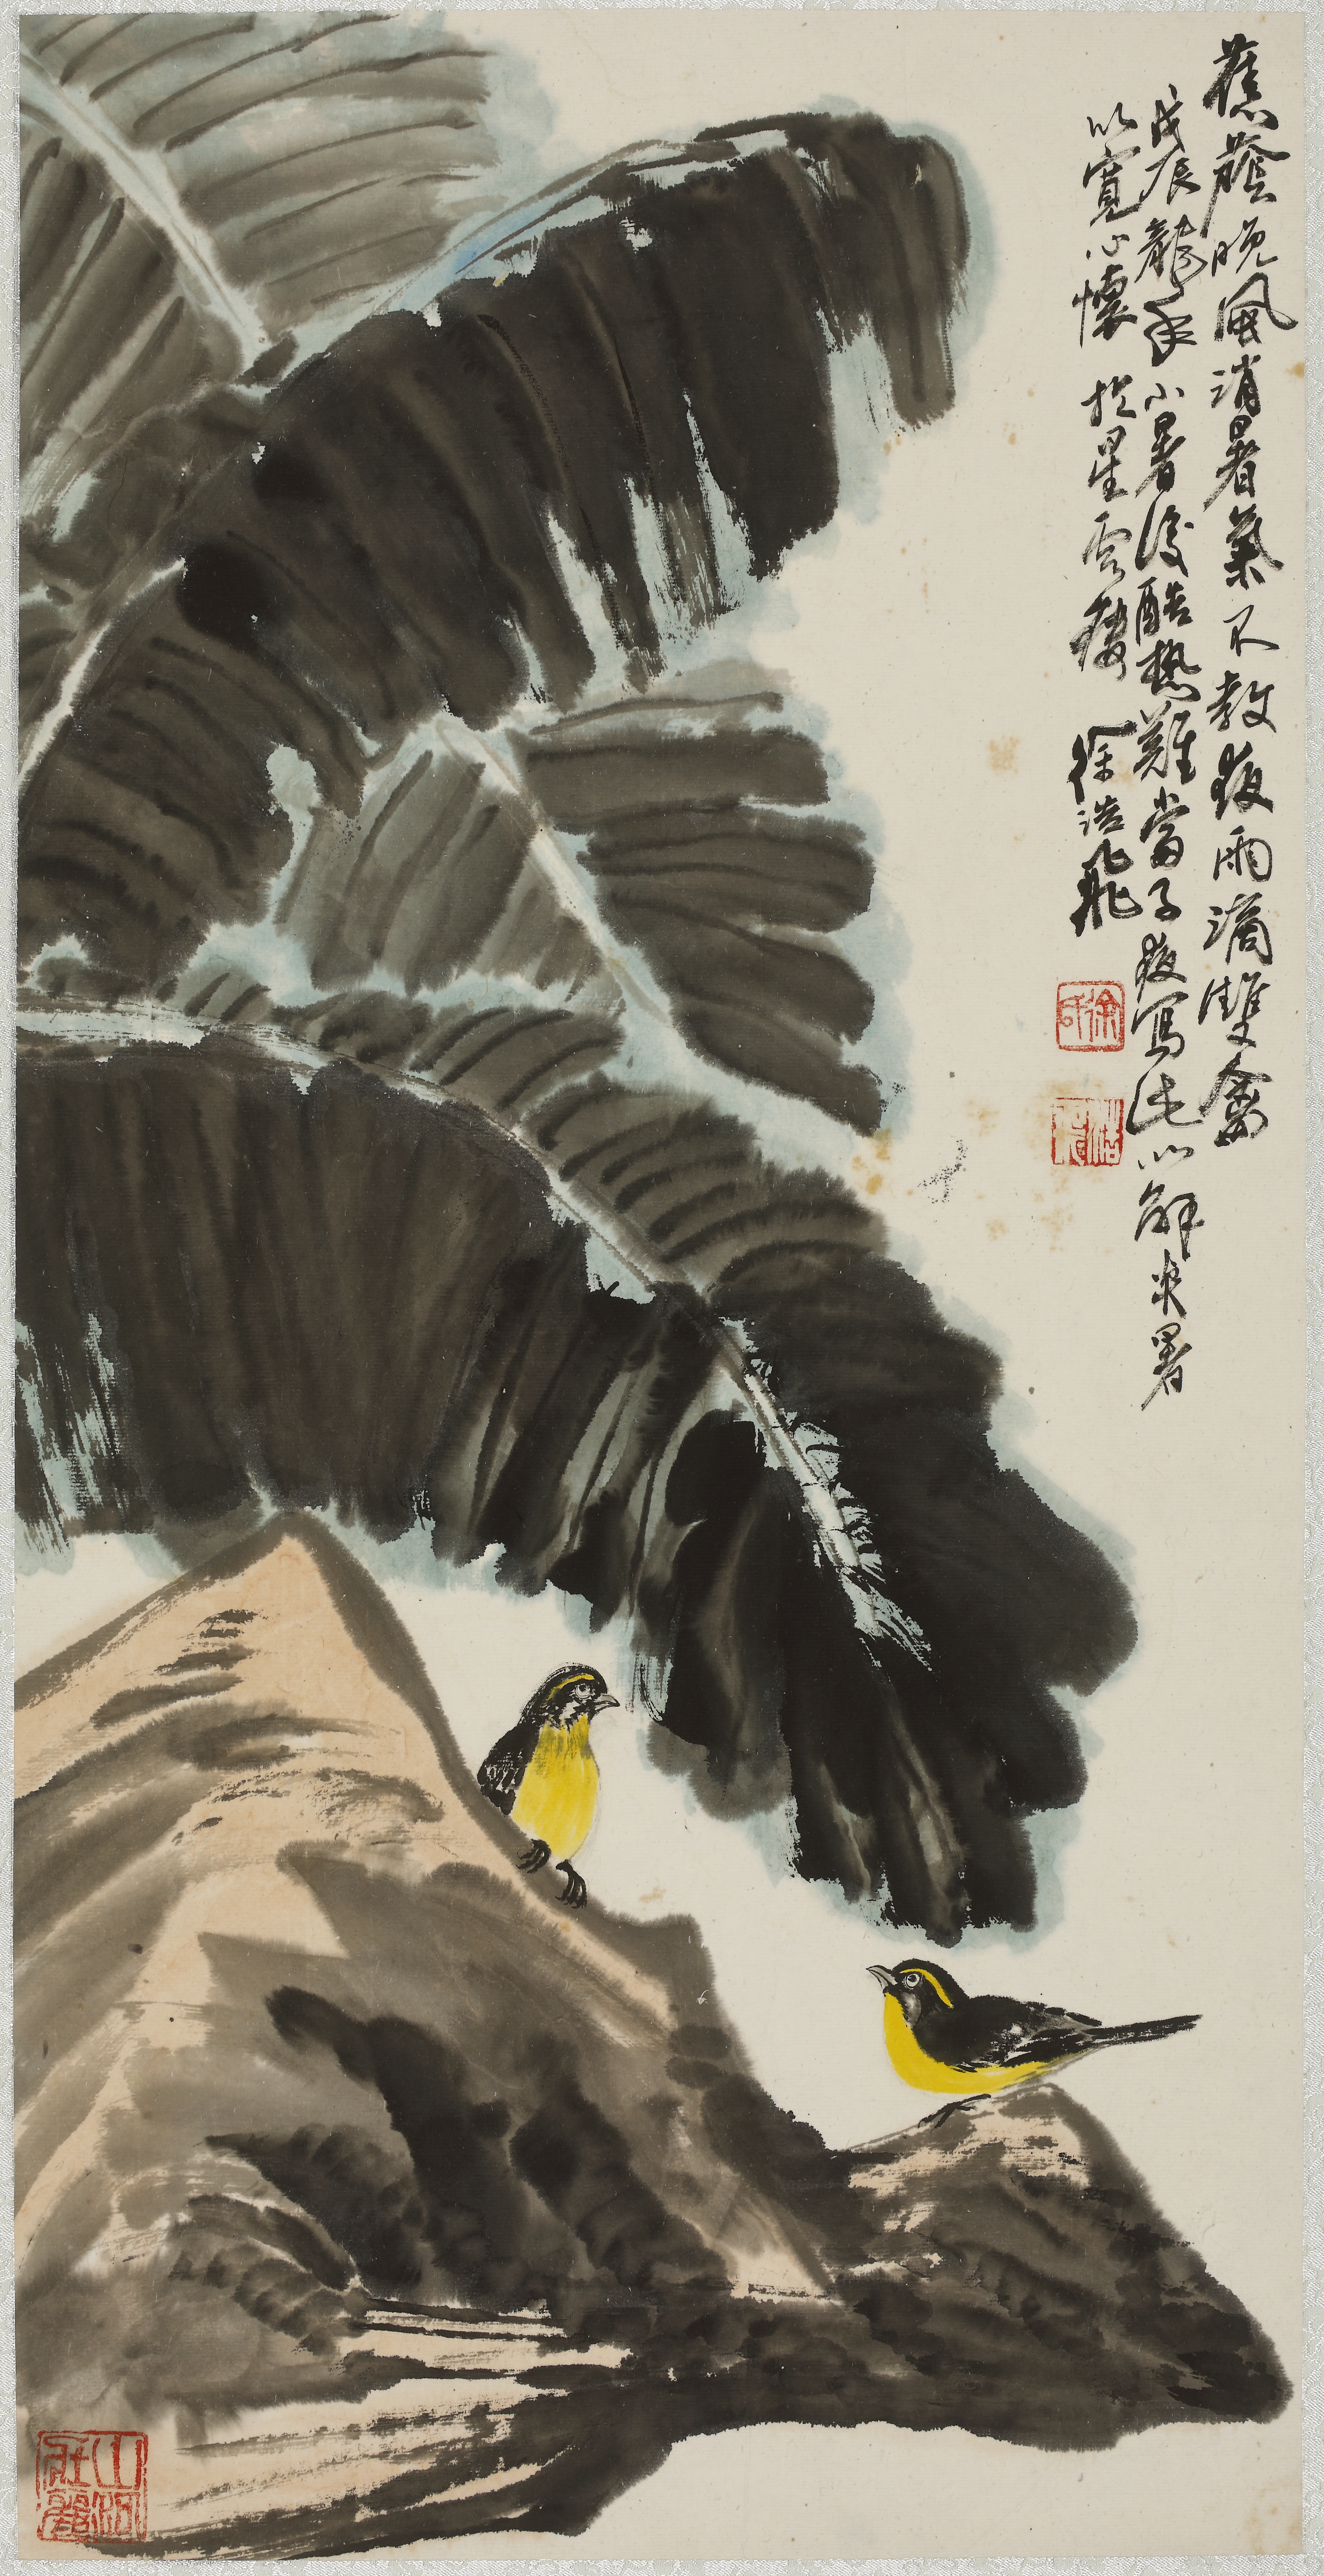 蕉蔭晚風消暑氣不教夜雨滴雙禽
戊辰龍年小暑後酷熱難當子夜寫此以解炎暑
以寬心懷於星雲樓徐浩飛
山河壯麗